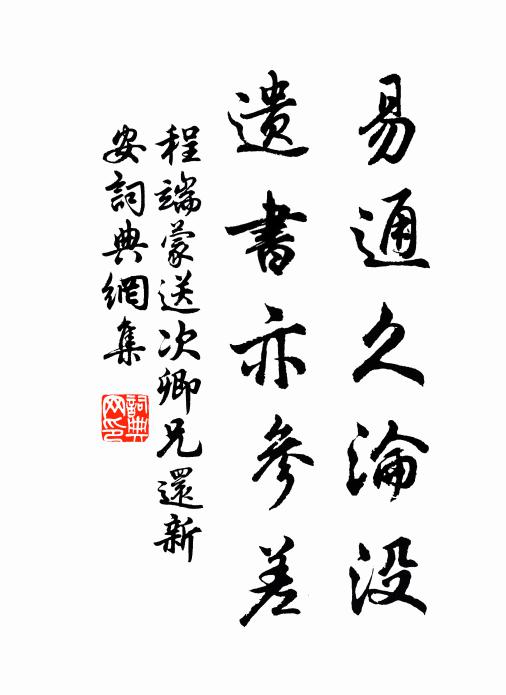 易通久淪没
遺書亦參差
程端蒙送次卿兄還新
安詞典網集
詞典網印